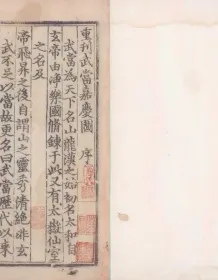 重刊武當嘉慶圖 序
武當為天下名山龍漢之
初名太和自
玄帝由淨樂國脩鍊于此又有太嶽仙室
之名及
帝飛昇之後自謂山之靈秀清絕非玄
武不足以當故更名曰武當歷代以來